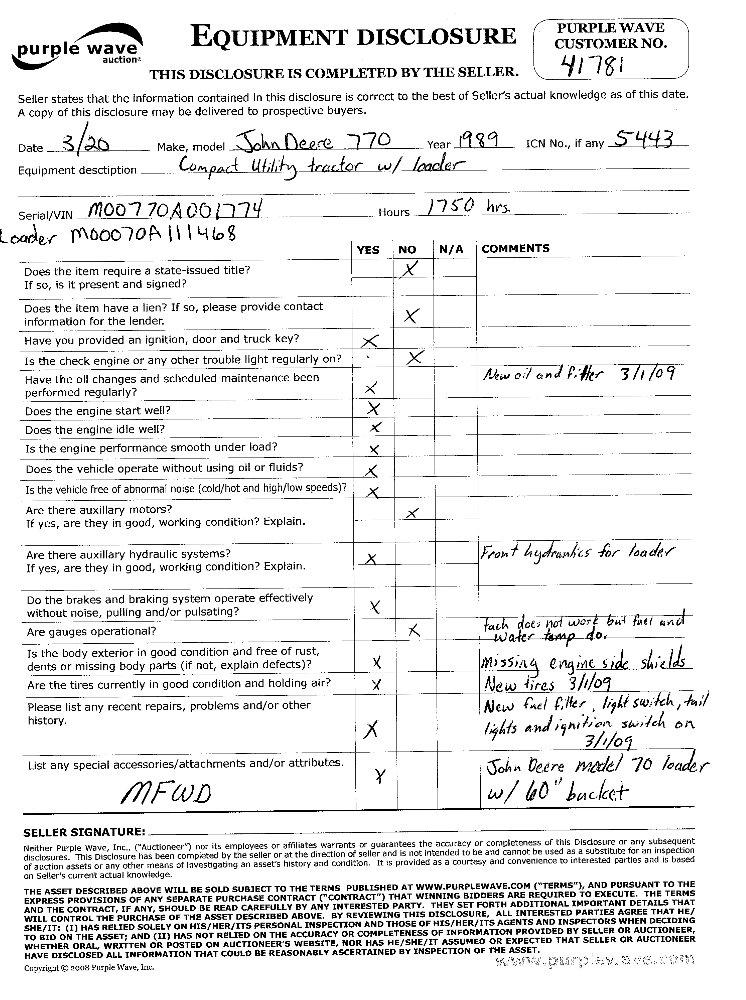 purple wave
auction®
EQUIPMENT DISCLOSURE
THIS DISCLOSURE IS COMPLETED BY THE SELLER.
PURPLE WAVE
CUSTOMER NO.
41781
Seller states that the information contained in this disclosure is correct to the best of Seller's actual knowledge as of this date.
A copy of this disclosure may be delivered to prospective buyers.
Date 3/20 Make, model John Deere 770 Year 1989 ICN No., if any 5443
Equipment desctiption Compact Utility tractor w/ loader
Serial/VIN M00770A001774 Hours 1750 hrs.
Loader M00070A111468
YES NO N/A COMMENTS
Does the item require a state-issued title? X
If so, is it present and signed?
Does the item have a lien? If so, please provide contact
information for the lender. X
Have you provided an ignition, door and truck key? X
Is the check engine or any other trouble light regularly on? X
Have the oil changes and scheduled maintenance been New oil and filter 3/1/09
performed regularly? X
Does the engine start well? X
Does the engine idle well? X
Is the engine performance smooth under load? X
Does the vehicle operate without using oil or fluids? X
Is the vehicle free of abnormal noise (cold/hot and high/low speeds)? X
Are there auxillary motors? X
If yes, are they in good, working condition? Explain.
Are there auxillary hydraulic systems? X Front hydraulics for loader
If yes, are they in good, working condition? Explain.
Do the brakes and braking system operate effectively
without noise, pulling and/or pulsating? X
tach does not work but fuel and
Are gauges operational? X water temp do.
Is the body exterior in good condition and free of rust,
dents or missing body parts (if not, explain defects)? X missing engine side shields
Are the tires currently in good condition and holding air? X New tires 3/1/09
Please list any recent repairs, problems and/or other New fuel filter, light switch, tail
history. X lights and ignition switch on
3/1/09
List any special accessories/attachments and/or attributes. X John Deere model 70 loader
MFWD w/ 60" bucket
SELLER SIGNATURE:
Neither Purple Wave, Inc., ("Auctioneer") nor its employees or affiliates warrants or guarantees the accuracy or completeness of this Disclosure or any subsequent
disclosures. This Disclosure has been completed by the seller or at the direction of seller and is not intended to be and cannot be used as a substitute for an inspection
of auction assets or any other means of investigating an asset's history and condition. It is provided as a courtesy and convenience to interested parties and is based
on Seller's current actual knowledge.
THE ASSET DESCRIBED ABOVE WILL BE SOLD SUBJECT TO THE TERMS PUBLISHED AT WWW.PURPLEWAVE.COM ("TERMS"), AND PURSUANT TO THE
EXPRESS PROVISIONS OF ANY SEPARATE PURCHASE CONTRACT ("CONTRACT") THAT WINNING BIDDERS ARE REQUIRED TO EXECUTE. THE TERMS
AND THE CONTRACT, IF ANY, SHOULD BE READ CAREFULLY BY ANY INTERESTED PARTY. THEY SET FORTH ADDITIONAL IMPORTANT DETAILS THAT
WILL CONTROL THE PURCHASE OF THE ASSET DESCRIBED ABOVE. BY REVIEWING THIS DISCLOSURE, ALL INTERESTED PARTIES AGREE THAT HE/
SHE/IT: (I) HAS RELIED SOLELY ON HIS/HER/ITS PERSONAL INSPECTION AND THOSE OF HIS/HER/ITS AGENTS AND INSPECTORS WHEN DECIDING
TO BID ON THE ASSET; AND (II) HAS NOT RELIED ON THE ACCURACY OR COMPLETENESS OF INFORMATION PROVIDED BY SELLER OR AUCTIONEER,
WHETHER ORAL, WRITTEN OR POSTED ON AUCTIONEER'S WEBSITE, NOR HAS HE/SHE/IT ASSUMED OR EXPECTED THAT SELLER OR AUCTIONEER
HAVE DISCLOSED ALL INFORMATION THAT COULD BE REASONABLY ASCERTAINED BY INSPECTION OF THE ASSET.
www.purplewave.com
Copyright © 2008 Purple Wave, Inc.